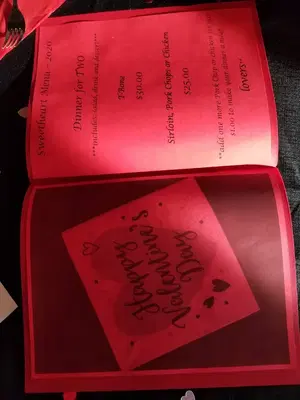 Sweetheart Menu - 2020
Dinner for TWO
***includes salad, drink and dessert***
T-Bone
$30.00
Sirloin, Pork Chops or Chicken
$25.00
**add one more Pork Chop or Chicken for just
$1.00 to make your dinner a meat
lovers**
Happy
Valentine's
Day